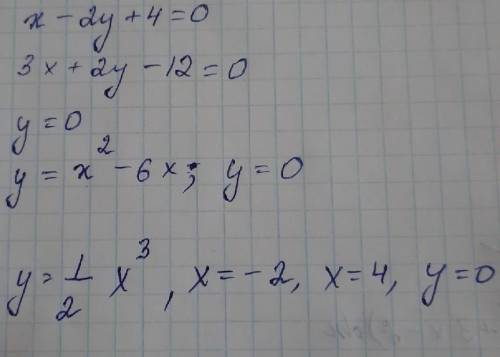 x - 2y + 4 = 0
3x + 2y - 12 = 0
y = 0
y = x² - 6x; y = 0
y = 1/2 x³, x = -2, x = 4, y = 0